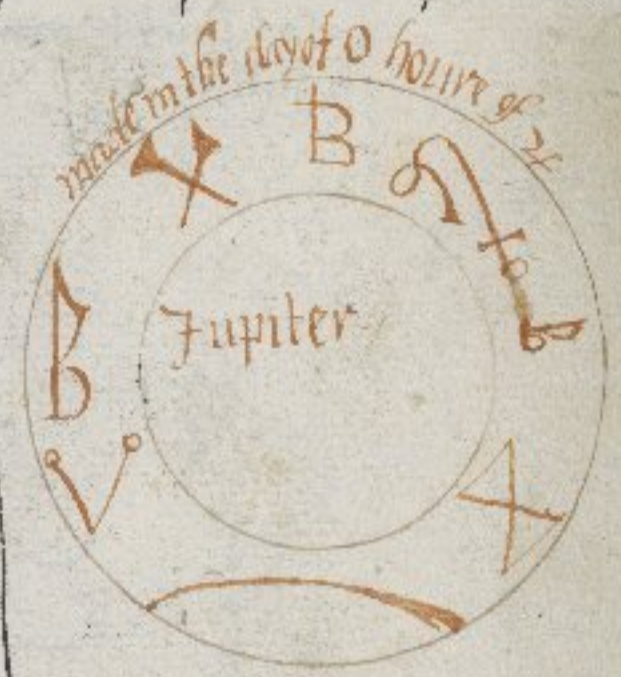 made in the day of O houre of ♃
B
Jupiter
B